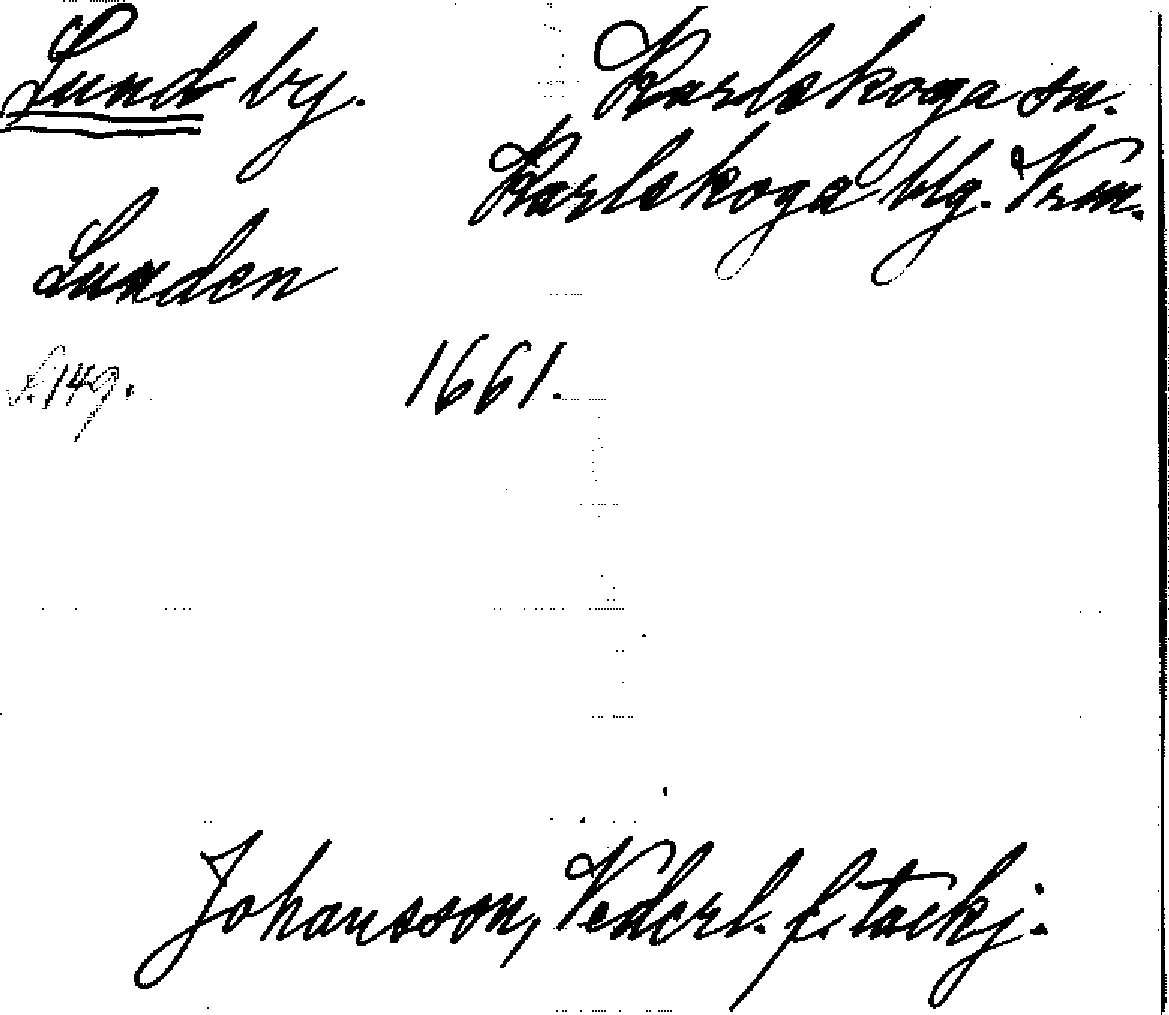 Lund by. Karlskoga sn.
Karlskoga blg. Vrm.
Lunden
s. 149. 1661.
Johansson, Vederl. f. tackj.